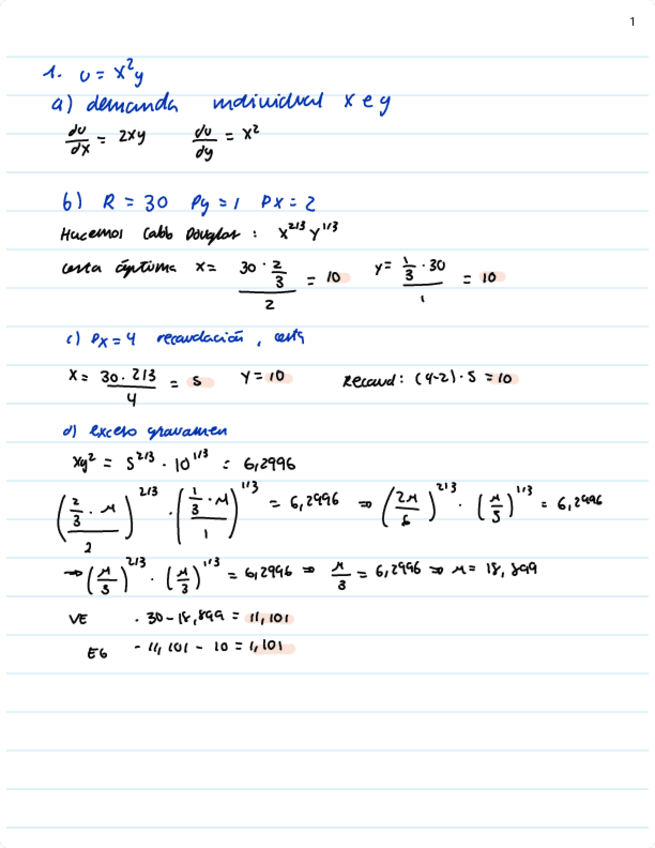 1
1. U = x²y
a) demanda individual x e y
du/dx = 2xy du/dy = x²
b) R = 30 Py = 1 Px = 2
Hacemos Cobb Douglas : x^2/3 y^1/3
cesta óptima x = (30 · 2/3)/2 = 10 y = (1/3 · 30)/1 = 10
c) Px = 4 recaudación, cesta
X = (30 · 2/3)/4 = 5 Y = 10 Recaud : (4-2) · 5 = 10
d) exceso gravamen
xy² = 5^2/3 · 10^1/3 = 6,2996
((2/3 · M)/2)^2/3 · ((1/3 · M)/1)^1/3 = 6,2996 ⇒ (2M/6)^2/3 · (M/3)^1/3 = 6,2996
→ (M/3)^2/3 · (M/3)^1/3 = 6,2996 ⇒ M/3 = 6,2996 ⇒ M = 18,899
VE · 30 - 18,899 = 11,101
EG - 11,101 - 10 = 1,101